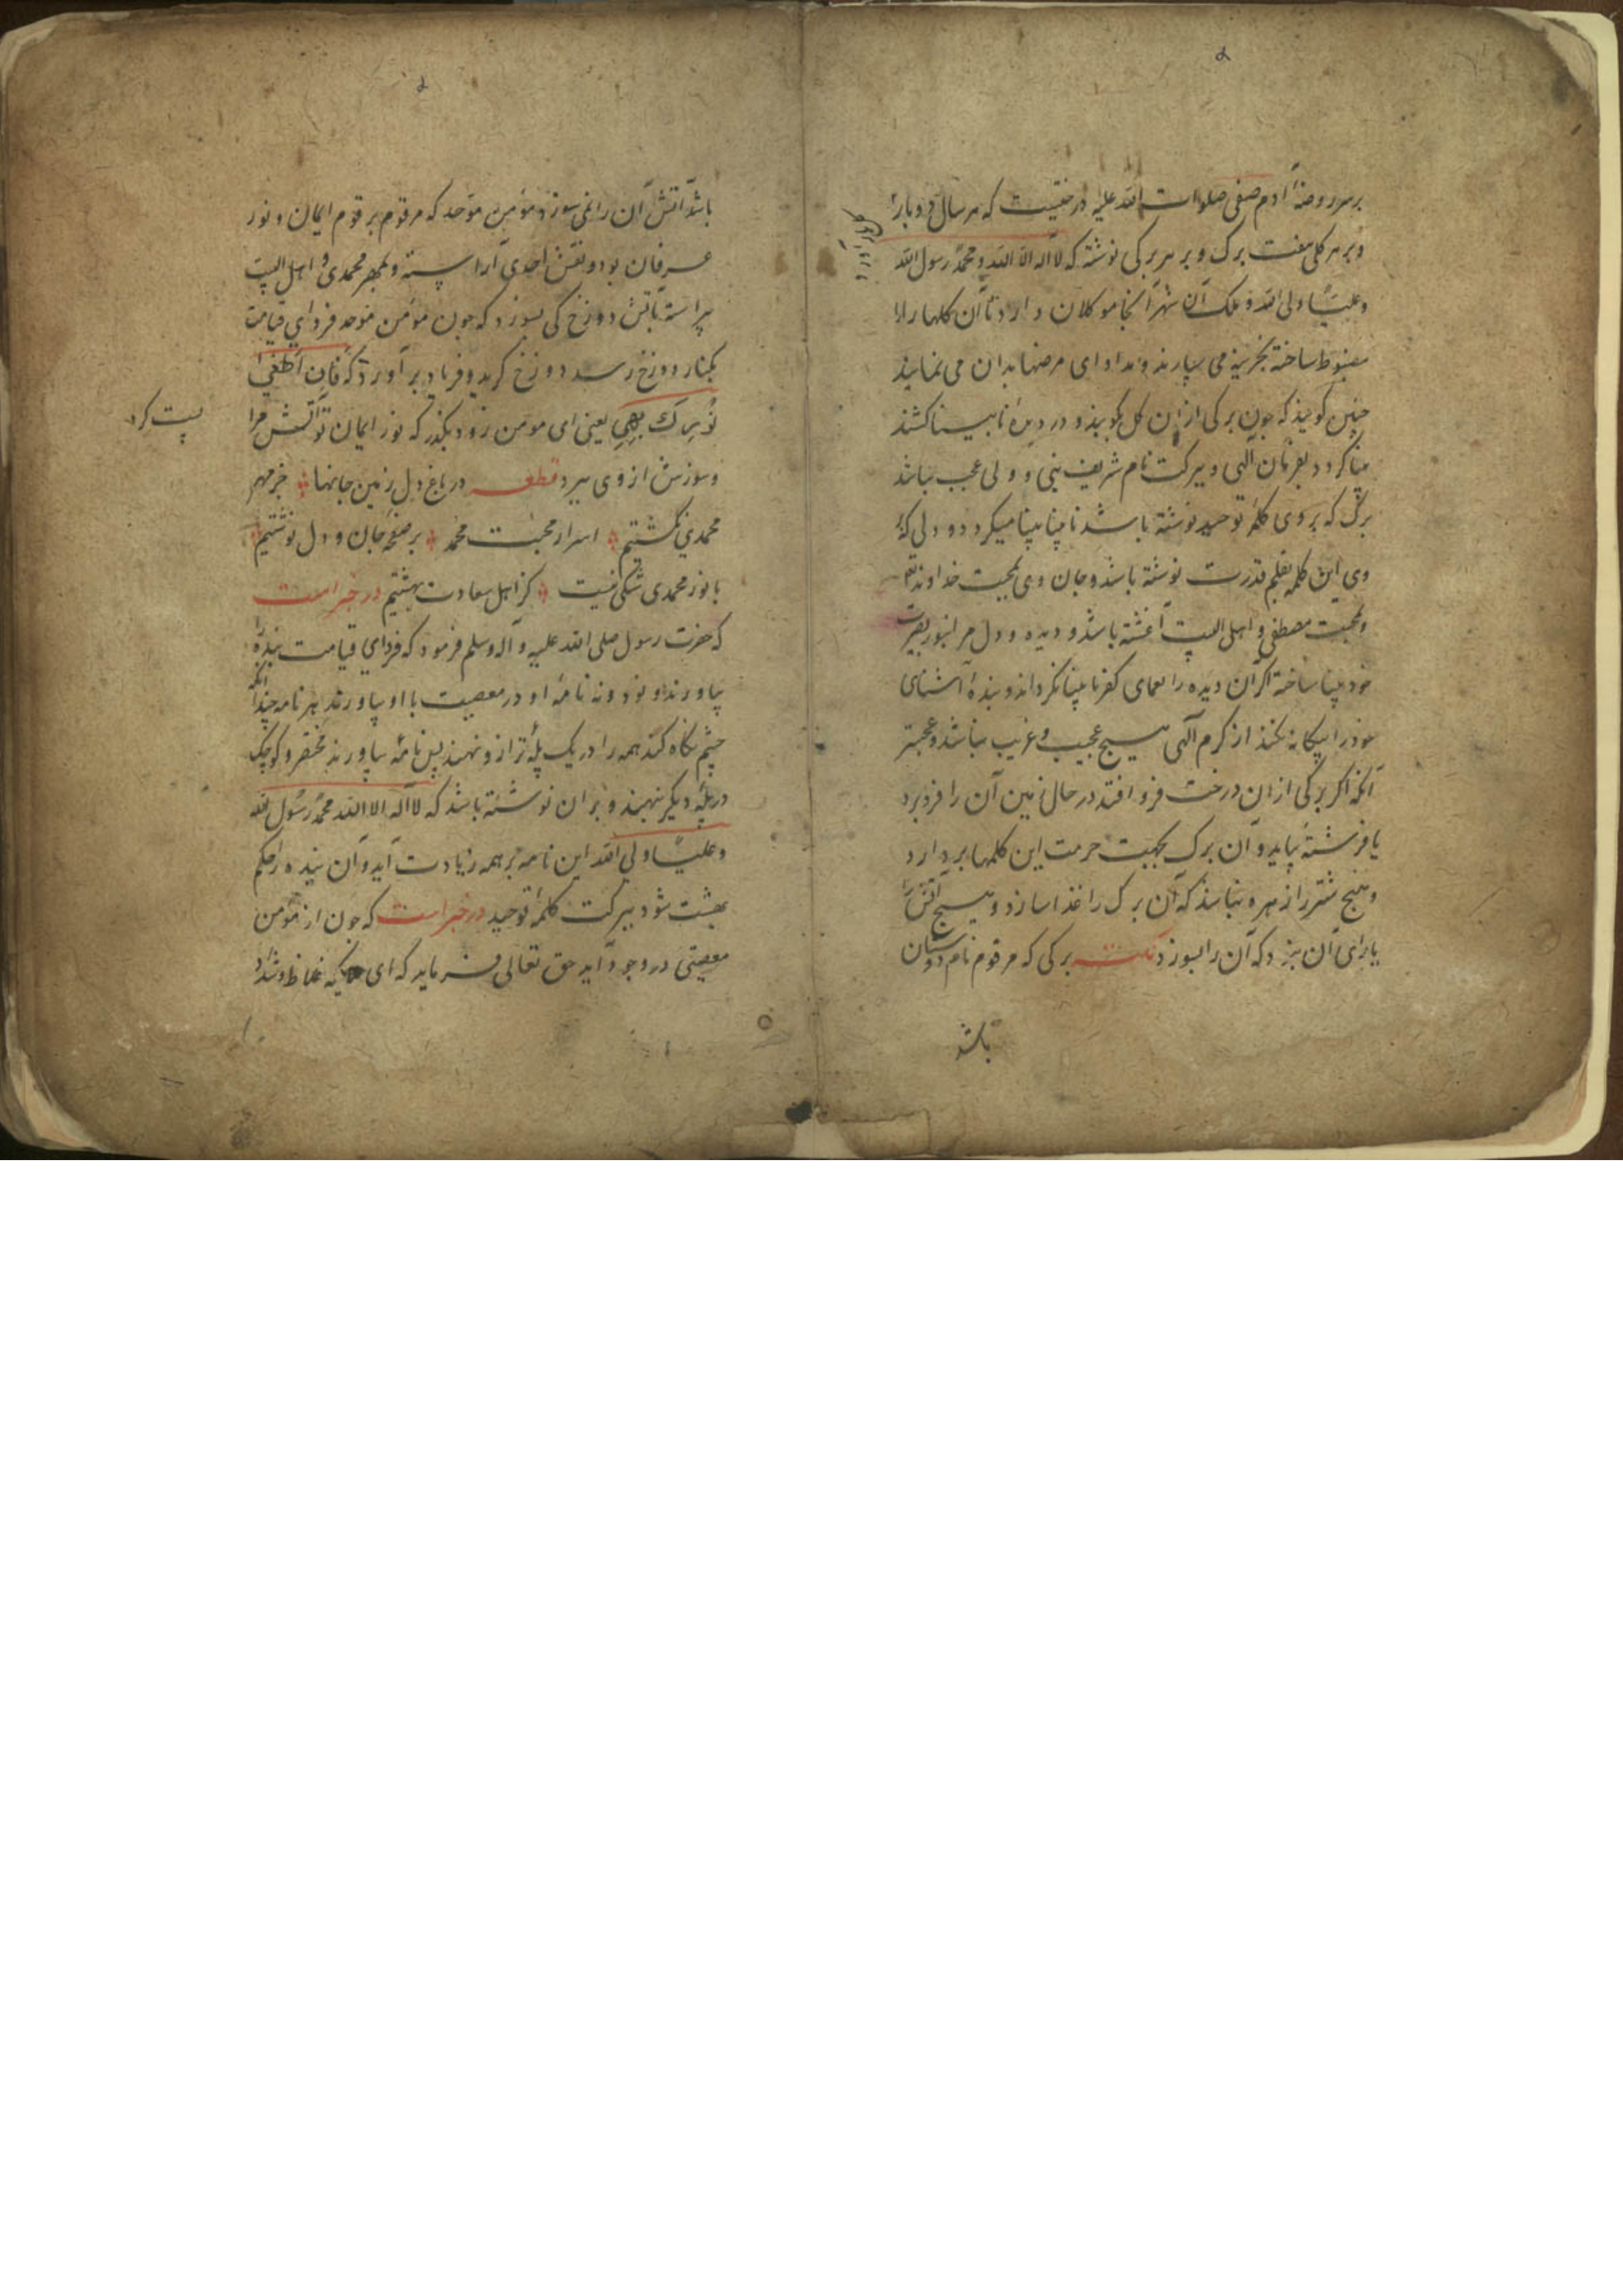 بر سر روضهٔ آدم صفی صلوات الله علیه درختیست که هر سال دو بار
گل آورد
و بر هر گلی هفت برک و بر هر برکی نوشته که لا اله الا الله و محمد رسول الله
و علیا ولی الله و ملک آن شهر آنجا موکلان دارد تا آن کلها را
مضبوط ساخته بخزینه می سپارند و مداوای مرضها بدان می نمایند
چنین کویند که چون برکی از ان کل بکوبند و در دیدهٔ نابینا کشند
بینا کردد بفرمان الهی و ببرکت نام شریف نبی و ولی عجب نباشد
برکی که بر وی کلمهٔ توحید نوشته باشد نابینا بینا میکردد و دلی که بر
وی این کلمه بقلم قدرت نوشته باشد و جان وی بمحبت خداوند
و بمحبت مصطفی و اهل البیت آغشته باشد و دیده و دل مر او بنور بصیرت
خود بینا ساخته اکر آن دیده را بعمای کفر نابینا نکرداند و بندهٔ آشنای
خود را بیکانه نکند از کرم الهی هیچ عجیب و غریب نباشد و عجبتر
آنکه اکر برکی از ان درخت فرو افتد در حال زمین آن را فرو برد
یا فرشتهٔ بیاید و آن برک بجهت حرمت این کلمها بردارد
و هیچ شتر را زهره نباشد که آن برک را غذا سازد و هیچ آتش را
یارای آن نبود که آن را بسوزد نکته برکی که مرقوم نام دوستان
باشد
باشد آتش آن را نمی سوزد مومن موحد که مرقوم برقوم ایمان و نور
عرفان بود و نقش احدی آراسته و بمهر محمدی و اهل البیت
پیراسته بآتش دوزخ کی بسوزد که چون مومن موحد فردای قیامت
بکنار دوزخ رسد دوزخ کرید و فریاد بر آورد که فان اطفی
نورک لهبی یعنی ای مومن زود بکذر که نور ایمان تو آتش مرا
پست کرد
و سوزش از وی ببرد قطعه در باغ دل زمین جانها جز مهر
محمدی نکشتیم اسرار محبت محمد بر صفحه جان و دل نوشتیم
با نور محمدی شکی نیست کز اهل سعادت بهشتیم در خبر است
که حضرت رسول صلی الله علیه و آله وسلم فرمود که فردای قیامت بنده را
بیاورند و نود و نه نامهٔ او در معصیت با او بیاورند هر نامه چندانکه
چشم نکاه کند همه را در یک پلهٔ ترازو نهند پس نامهٔ بیاورند مختصر و کوچک
در پلهٔ دیکر نهند و بر ان نوشته باشد که لا اله الا الله محمد رسول الله
و علیا ولی الله این نامه بر همه زیادت آید و آن بنده را حکم
بهشت شود ببرکت کلمهٔ توحید در خبر است که چون از مومن
معصیتی در وجود آید حق تعالی فرماید که ای